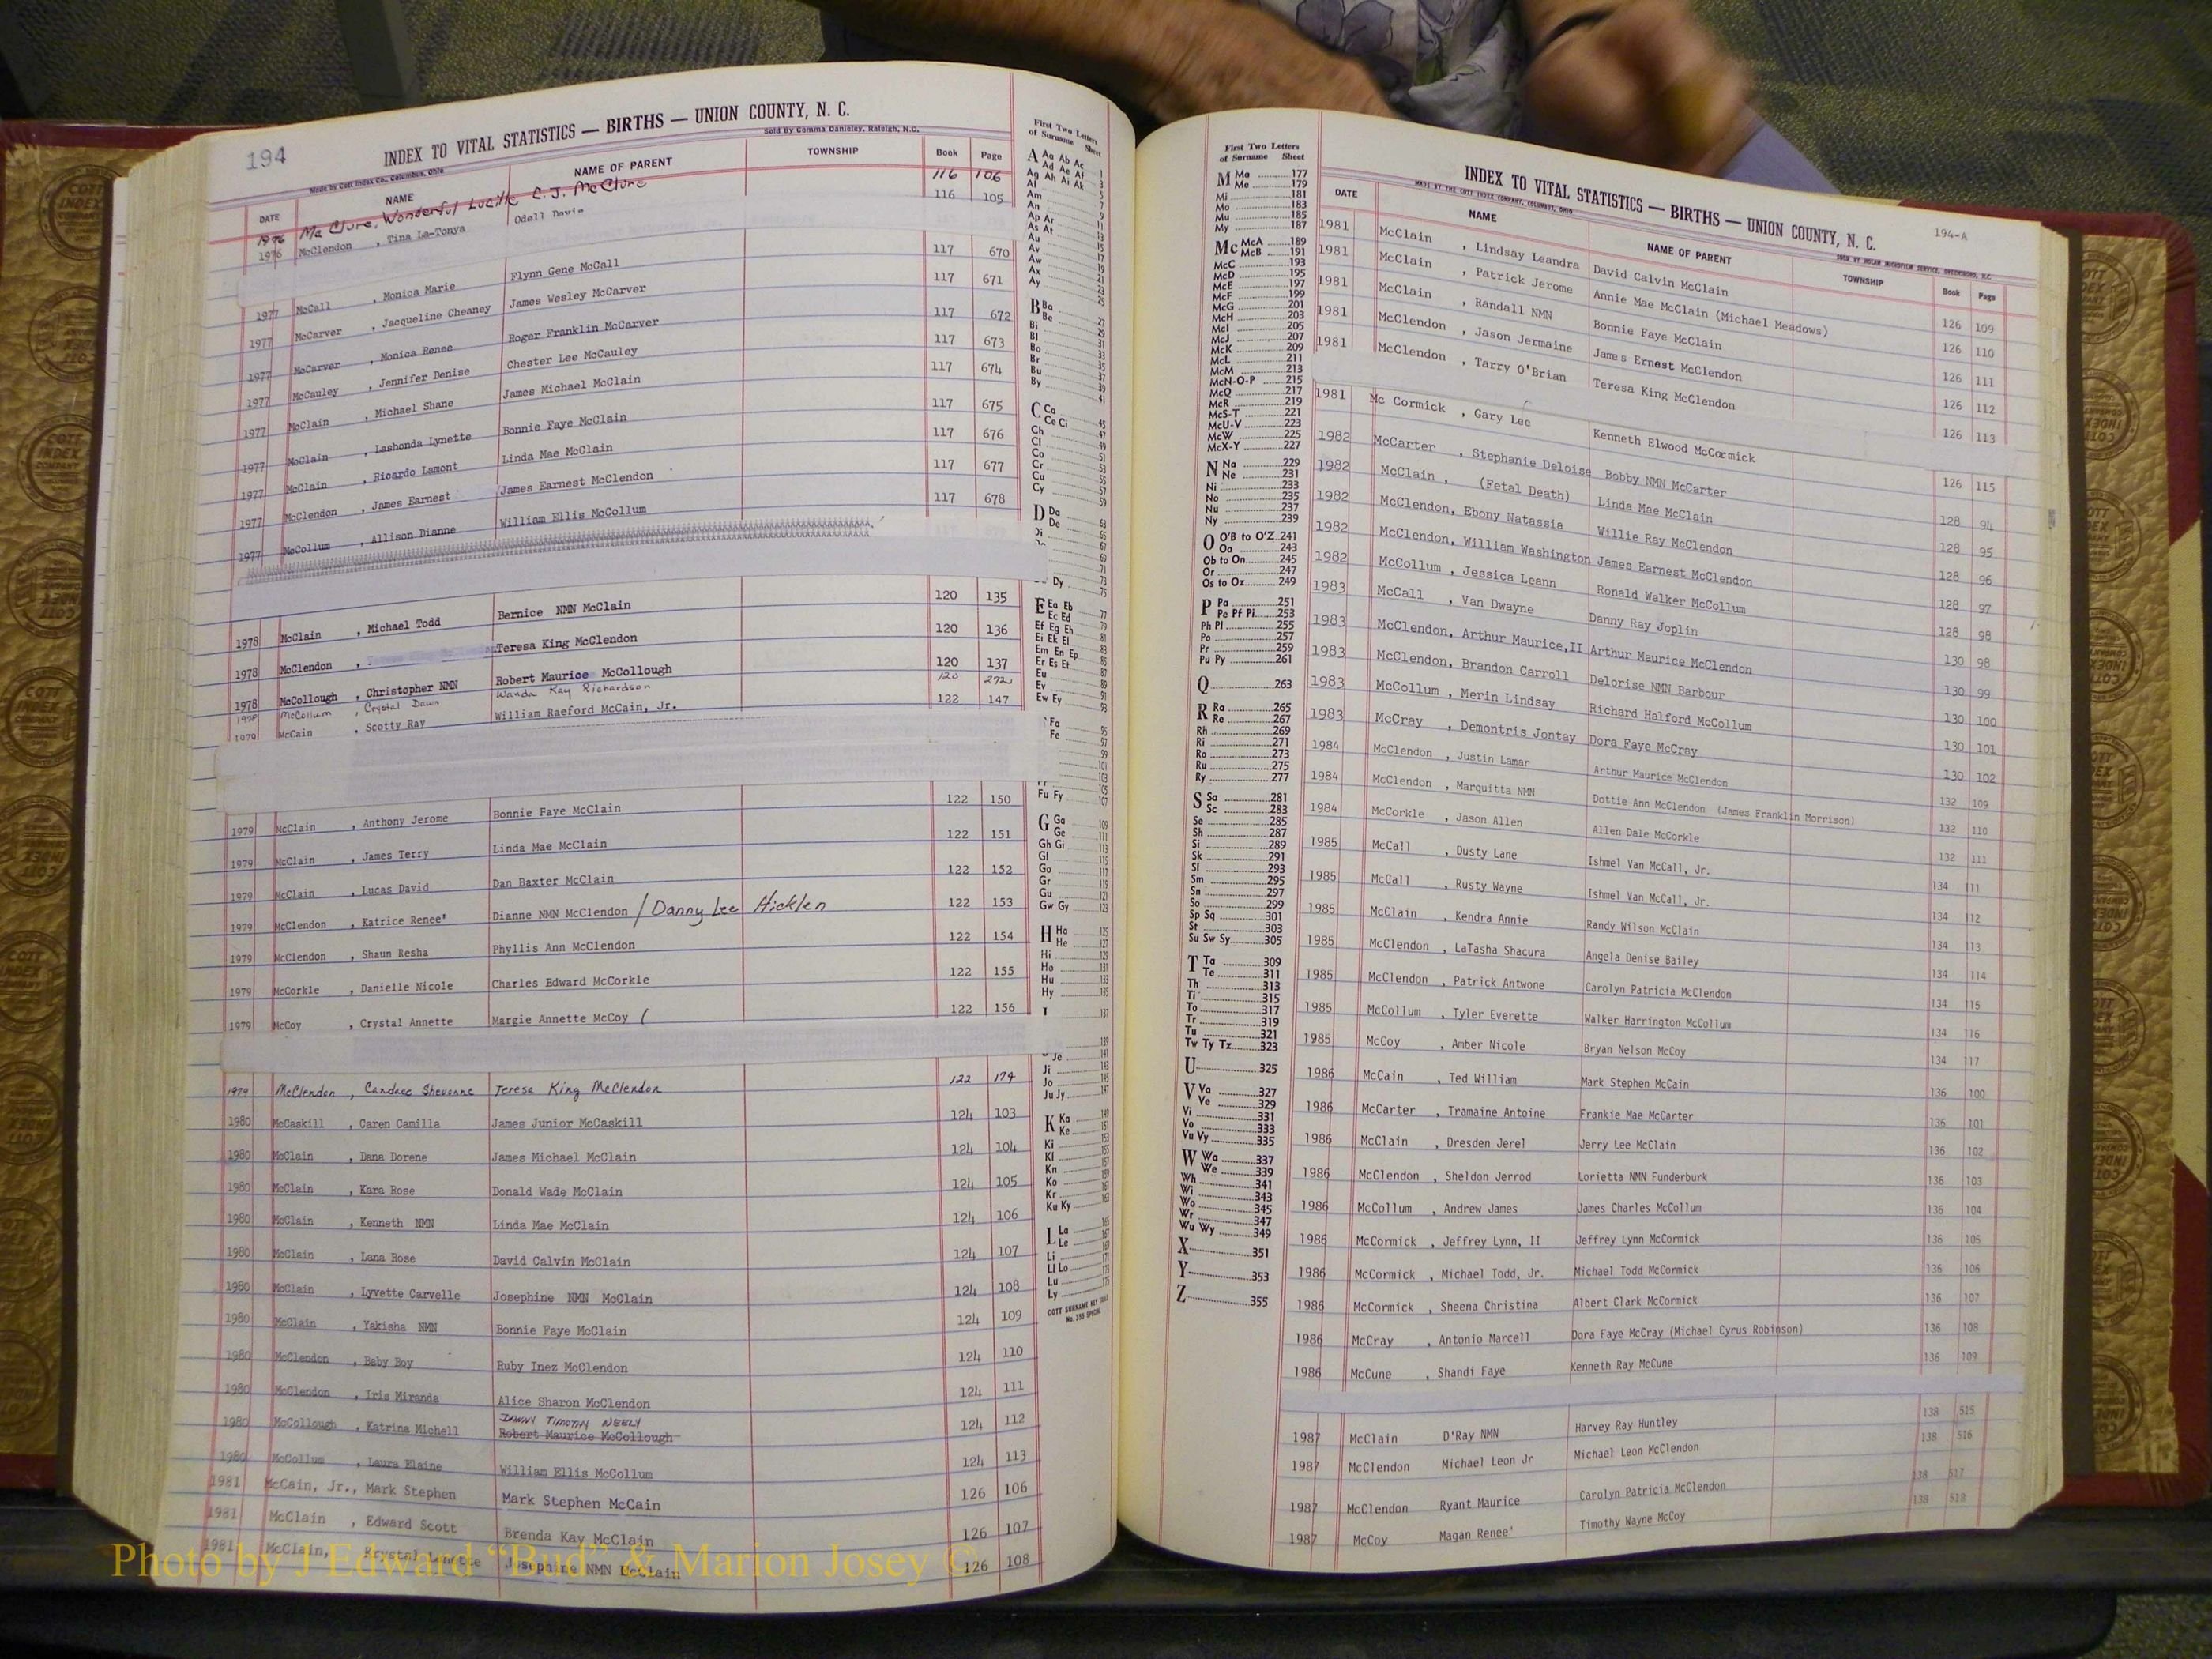 194
INDEX TO VITAL STATISTICS — BIRTHS — UNION COUNTY, N. C.
Made by Cott Index Co., Columbus, Ohio
Sold By Comma Danieley, Raleigh, N.C.
DATE NAME NAME OF PARENT TOWNSHIP Book Page
1976 McClure, Wonderful Lucille C.J. McClure 116 106
1976 McClendon , Tina La-Tonya Odell Davis 116 105
1977 McCall , Monica Marie Flynn Gene McCall 117 670
1977 McCarver , Jacqueline Cheaney James Wesley McCarver 117 671
1977 McCarver , Monica Renee Roger Franklin McCarver 117 672
1977 McCauley , Jennifer Denise Chester Lee McCauley 117 673
1977 McClain , Michael Shane James Michael McClain 117 674
1977 McClain , Lashonda Lynette Bonnie Faye McClain 117 675
1977 McClain , Ricardo Lamont Linda Mae McClain 117 676
1977 McClendon , James Earnest James Earnest McClendon 117 677
1977 McCollum , Allison Dianne William Ellis McCollum 117 678
1978 McClain , Michael Todd Bernice NMN McClain 120 135
1978 McClendon , Teresa King McClendon 120 136
1978 McCollough , Christopher NMN Robert Maurice McCollough 120 137
1978 McCollum , Crystal Dawn Wanda Kay Richardson 120 272
1979 McCain , Scotty Ray William Raeford McCain, Jr. 122 147
1979 McClain , Anthony Jerome Bonnie Faye McClain 122 150
1979 McClain , James Terry Linda Mae McClain 122 151
1979 McClain , Lucas David Dan Baxter McClain 122 152
1979 McClendon , Katrice Renee' Dianne NMN McClendon / Danny Lee Hicklen 122 153
1979 McClendon , Shaun Resha Phyllis Ann McClendon 122 154
1979 McCorkle , Danielle Nicole Charles Edward McCorkle 122 155
1979 McCoy , Crystal Annette Margie Annette McCoy ( 122 156
1979 McClendon , Candace Shevonne Teresa King McClendon 122 174
1980 McCaskill , Caren Camilla James Junior McCaskill 124 103
1980 McClain , Dana Dorene James Michael McClain 124 104
1980 McClain , Kara Rose Donald Wade McClain 124 105
1980 McClain , Kenneth NMN Linda Mae McClain 124 106
1980 McClain , Lana Rose David Calvin McClain 124 107
1980 McClain , Lyvette Carvelle Josephine NMN McClain 124 108
1980 McClain , Yakisha NMN Bonnie Faye McClain 124 109
1980 McClendon , Baby Boy Ruby Inez McClendon 124 110
1980 McClendon , Iris Miranda Alice Sharon McClendon 124 111
DANNY TIMOTHY NEELY
1980 McCollough , Katrina Michell Robert Maurice McCollough 124 112
1980 McCollum , Laura Elaine William Ellis McCollum 124 113
1981 McCain, Jr., Mark Stephen Mark Stephen McCain 126 106
1981 McClain , Edward Scott Brenda Kay McClain 126 107
1981 McClain, Krystal Lynette Josephine NMN McClain 126 108
First Two Letters
of Surname Sheet
A Aa Ab Ac 1
Ad Ae Af 3
Ag Ah Ai Ak 5
Al
Am
An
Ap Ar
As At
Au
Av
Aw
Ax
Ay
B Ba
Be
Bi
Bl
Bo
Br
Bu
By
C Ca
Ce Ci
Ch
Cl
Co
Cr
Cu
Cy
D Da
De
Dy
E Ea Eb
Ec Ed
Ef Eg Eh
Ei Ek El
Em En Ep
Er Es Et
Eu
Ev
Ew Ey
Fa
Fe
Fu Fy
G Ga
Ge
Gh Gi
Gl
Go
Gr
Gu
Gw Gy
H Ha
He
Hi
Ho
Hu
Hy
I
Je
Ji
Jo
Ju Jy
K Ka
Ke
Ki
Kl
Kn
Ko
Kr
Ku Ky
L La
Le
Li
Ll Lo
Lu
Ly
COTT SURNAME KEY TABLE
No. 355 SPECIAL
First Two Letters
of Surname Sheet
M Ma 177
Me 179
Mi 181
Mo 183
Mu 185
My 187
Mc McA 189
McB 191
McC 193
McD 195
McE 197
McF 199
McG 201
McH 203
McI 205
McJ 207
McK 209
McL 211
McM 213
McN-O-P 215
McQ 217
McR 219
McS-T 221
McU-V 223
McW 225
McX-Y 227
N Na 229
Ne 231
Ni 233
No 235
Nu 237
Ny 239
O O'B to O'Z 241
Oa 243
Ob to On 245
Or 247
Os to Oz 249
P Pa 251
Pe Pf Pi 253
Ph Pl 255
Po 257
Pr 259
Pu Py 261
Q 263
R Ra 265
Re 267
Rh 269
Ri 271
Ro 273
Ru 275
Ry 277
S Sa 281
Sc 283
Se 285
Sh 287
Si 289
Sk 291
Sl 293
Sm 295
Sn 297
So 299
Sp Sq 301
St 303
Su Sw Sy 305
T Ta 309
Te 311
Th 313
Ti 315
To 317
Tr 319
Tu 321
Tw Ty Tz 323
U 325
V Va 327
Ve 329
Vi 331
Vo 333
Vu Vy 335
W Wa 337
We 339
Wh 341
Wi 343
Wo 345
Wr 347
Wu Wy 349
X 351
Y 353
Z 355
194-A
INDEX TO VITAL STATISTICS — BIRTHS — UNION COUNTY, N. C.
MADE BY THE COTT INDEX COMPANY, COLUMBUS, OHIO
SOLD BY MILAN MICROFILM SERVICE, GREENSBORO, N.C.
DATE NAME NAME OF PARENT TOWNSHIP Book Page
1981 McClain , Lindsay Leandra David Calvin McClain 126 109
1981 McClain , Patrick Jerome Annie Mae McClain (Michael Meadows) 126 110
1981 McClain , Randall NMN Bonnie Faye McClain 126 111
1981 McClendon , Jason Jermaine James Ernest McClendon 126 112
1981 McClendon , Tarry O'Brian Teresa King McClendon 126 113
1981 Mc Cormick , Gary Lee Kenneth Elwood McCormick 126 115
1982 McCarter , Stephanie Deloise Bobby NMN McCarter 128 94
1982 McClain , (Fetal Death) Linda Mae McClain 128 95
1982 McClendon, Ebony Natassia Willie Ray McClendon 128 96
1982 McClendon, William Washington James Earnest McClendon 128 97
1982 McCollum , Jessica Leann Ronald Walker McCollum 128 98
1983 McCall , Van Dwayne Danny Ray Joplin 130 98
1983 McClendon, Arthur Maurice,II Arthur Maurice McClendon 130 99
1983 McClendon, Brandon Carroll Delorise NMN Barbour 130 100
1983 McCollum , Merin Lindsay Richard Halford McCollum 130 101
1983 McCray , Demontris Jontay Dora Faye McCray 130 102
1984 McClendon , Justin Lamar Arthur Maurice McClendon 132 109
1984 McClendon , Marquitta NMN Dottie Ann McClendon (James Franklin Morrison) 132 110
1984 McCorkle , Jason Allen Allen Dale McCorkle 132 111
1985 McCall , Dusty Lane Ishmel Van McCall, Jr. 134 111
1985 McCall , Rusty Wayne Ishmel Van McCall, Jr. 134 112
1985 McClain , Kendra Annie Randy Wilson McClain 134 113
1985 McClendon , LaTasha Shacura Angela Denise Bailey 134 114
1985 McClendon , Patrick Antwone Carolyn Patricia McClendon 134 115
1985 McCollum , Tyler Everette Walker Harrington McCollum 134 116
1985 McCoy , Amber Nicole Bryan Nelson McCoy 134 117
1986 McCain , Ted William Mark Stephen McCain 136 100
1986 McCarter , Tramaine Antoine Frankie Mae McCarter 136 101
1986 McClain , Dresden Jerel Jerry Lee McClain 136 102
1986 McClendon , Sheldon Jerrod Lorietta NMN Funderburk 136 103
1986 McCollum , Andrew James James Charles McCollum 136 104
1986 McCormick , Jeffrey Lynn, II Jeffrey Lynn McCormick 136 105
1986 McCormick , Michael Todd, Jr. Michael Todd McCormick 136 106
1986 McCormick , Sheena Christina Albert Clark McCormick 136 107
1986 McCray , Antonio Marcell Dora Faye McCray (Michael Cyrus Robinson) 136 108
1986 McCune , Shandi Faye Kenneth Ray McCune 136 109
1987 McClain D'Ray NMN Harvey Ray Huntley 138 515
1987 McClendon Michael Leon Jr Michael Leon McClendon 138 516
1987 McClendon Ryant Maurice Carolyn Patricia McClendon 138 517
1987 McCoy Magan Renee' Timothy Wayne McCoy 138 518
Photo by J Edward "Bud" & Marion Josey ©